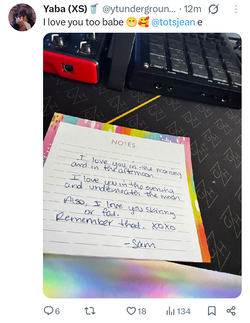 Yaba (XS) 🥤 @ytundergroun... · 12m
I love you too babe 😁🥰 @totsjean e
NOTES
I love you in the morning
and in the afternoon.
I love you in the evening
and underneath the moon.
Also, I love you skinny
or fat.
Remember that. xoxo
-Sam
6 18 134